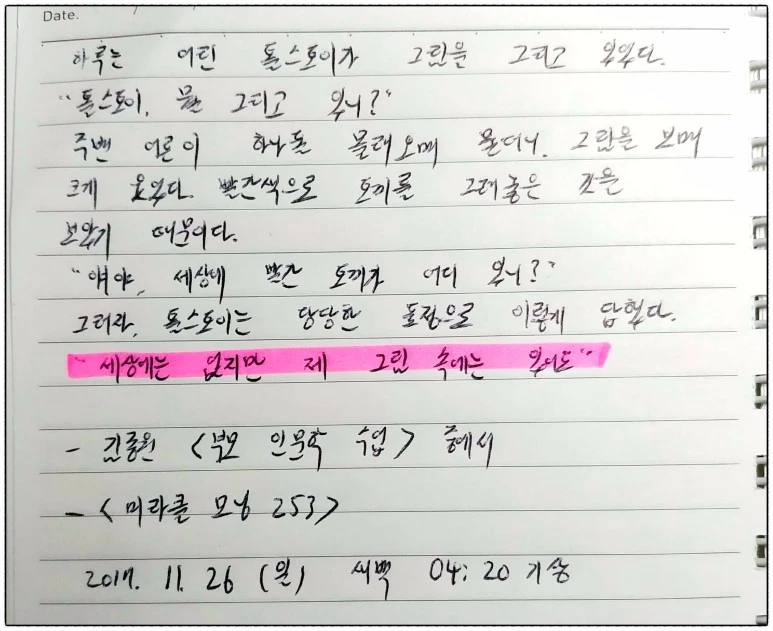 Date.
하루는 어린 톨스토이가 그림을 그리고 있었다.
"톨스토이, 뭘 그리고 있니?"
주변 어른이 하나둘 몰려오며 묻더니, 그림을 보며
크게 웃었다. 빨간색으로 토끼를 그려놓은 것을
보았기 때문이다.
"얘야, 세상에 빨간 토끼가 어디 있니?"
그러자, 톨스토이는 당당한 표정으로 이렇게 답했다.
"세상에는 없지만 제 그림 속에는 있어요"
- 김종원 <부모 인문학 수업> 중에서
- <미라클 모닝 253>
11. 26 (월) 새벽 04:20 기상